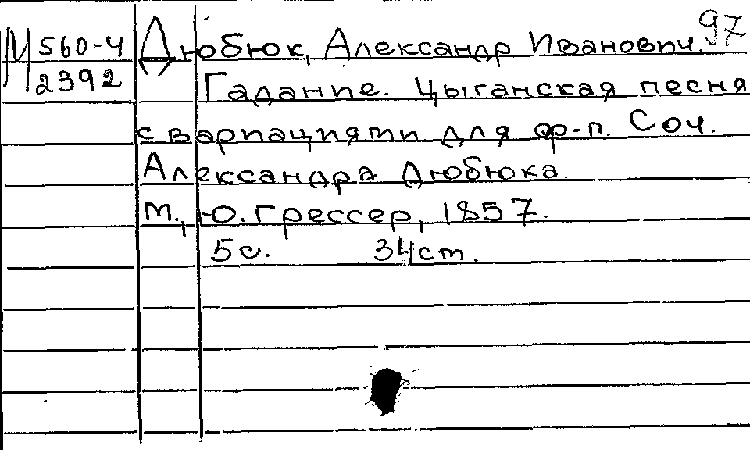 97
М 560-4 Дюбюк, Александр Иванович.
2392 Гадание. Цыганская песня
с вариациями для ф-п. Соч.
Александра Дюбюка
М., Ю. Грессер, 1857.
5с. 34см.